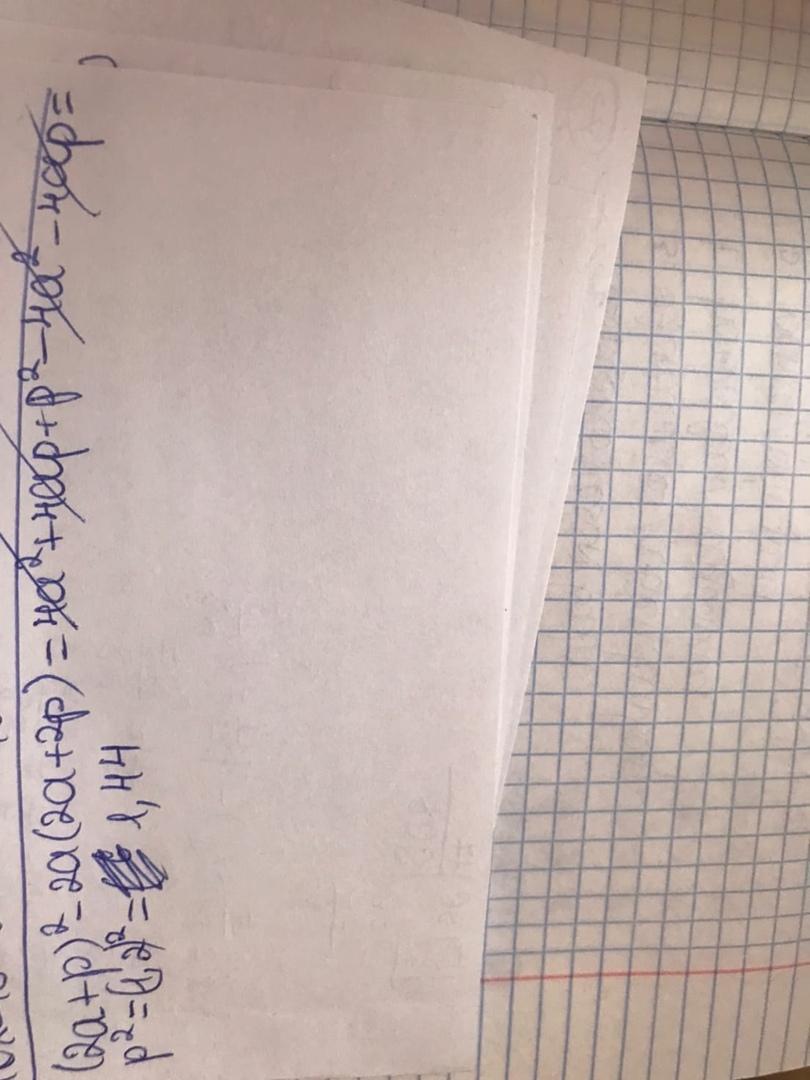 (2a+p)²-2a(2a+2p)=4a²+4ap+p²-4a²-4ap=
p²=(1,2)²= 1,44